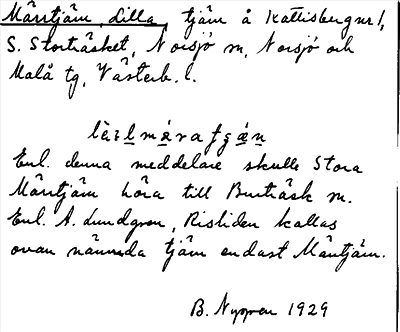 Mårtjärn, Lilla, tjärn å Kattisberg nr 1,
S. Storträsket, Norsjö sn, Norsjö och
Malå tg, Västerb. l.
Enl. denna meddelare skulle Stora
Mårtjärn höra till Burträsk sn.
Enl. A. Lundgren, Risliden kallas
ovan nämnda tjärn endast Mårtjärn.
B. Nygren 1929